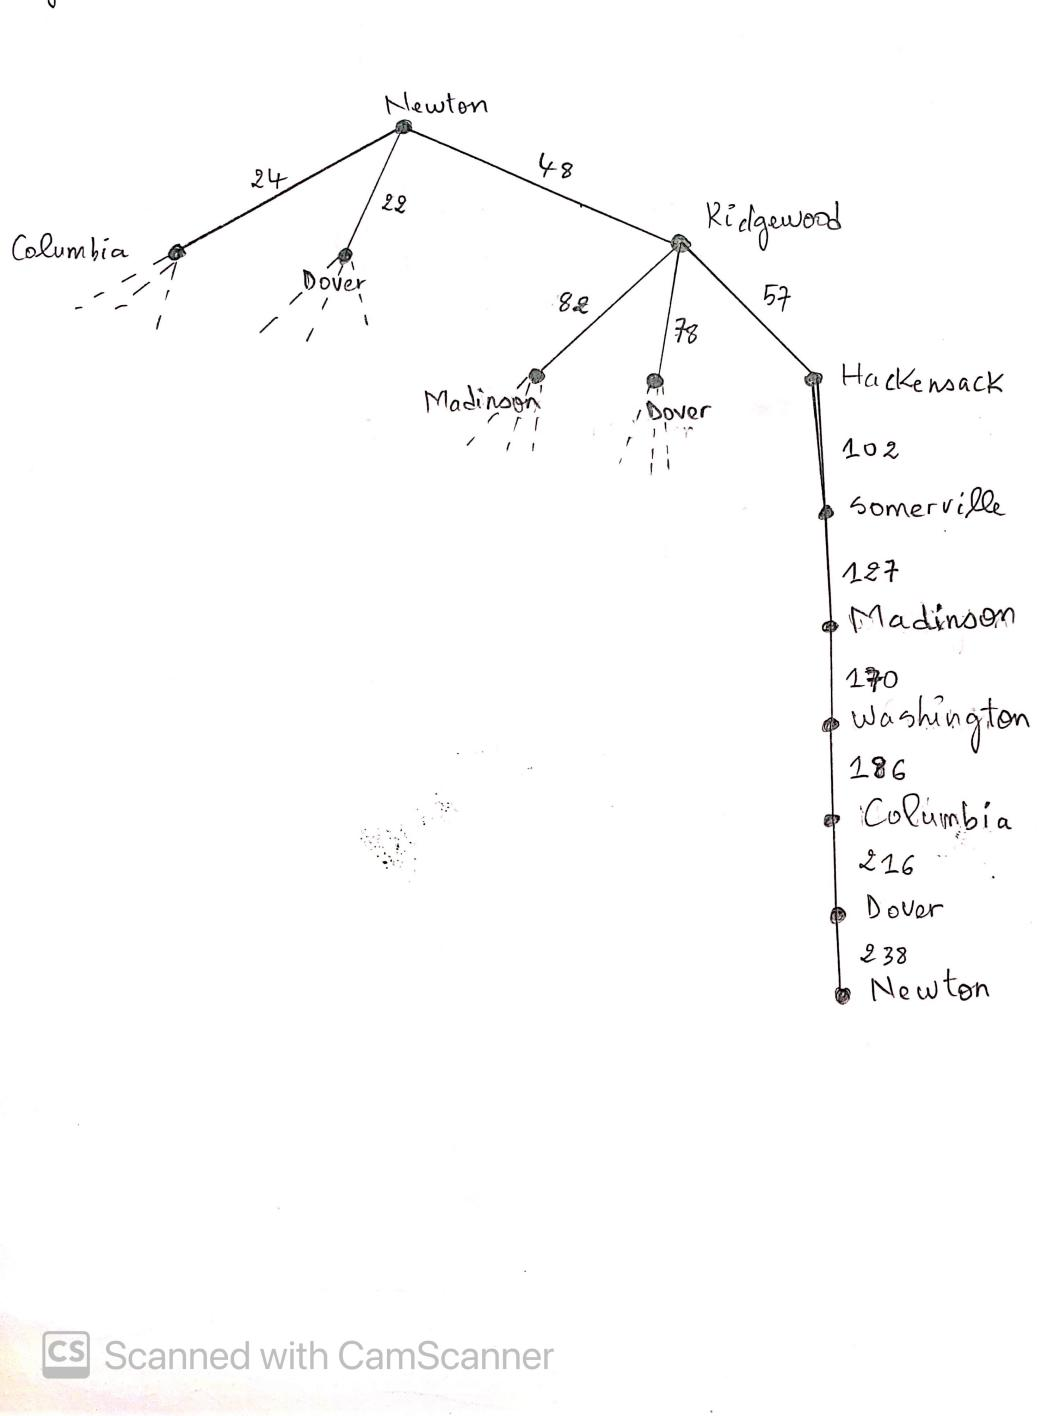 Newton
24
22
48
Columbia
Dover
Ridgewood
82
78
57
Madinson
Dover
Hackensack
102
Somerville
127
Madinson
170
Washington
186
Columbia
216
Dover
238
Newton
CS Scanned with CamScanner